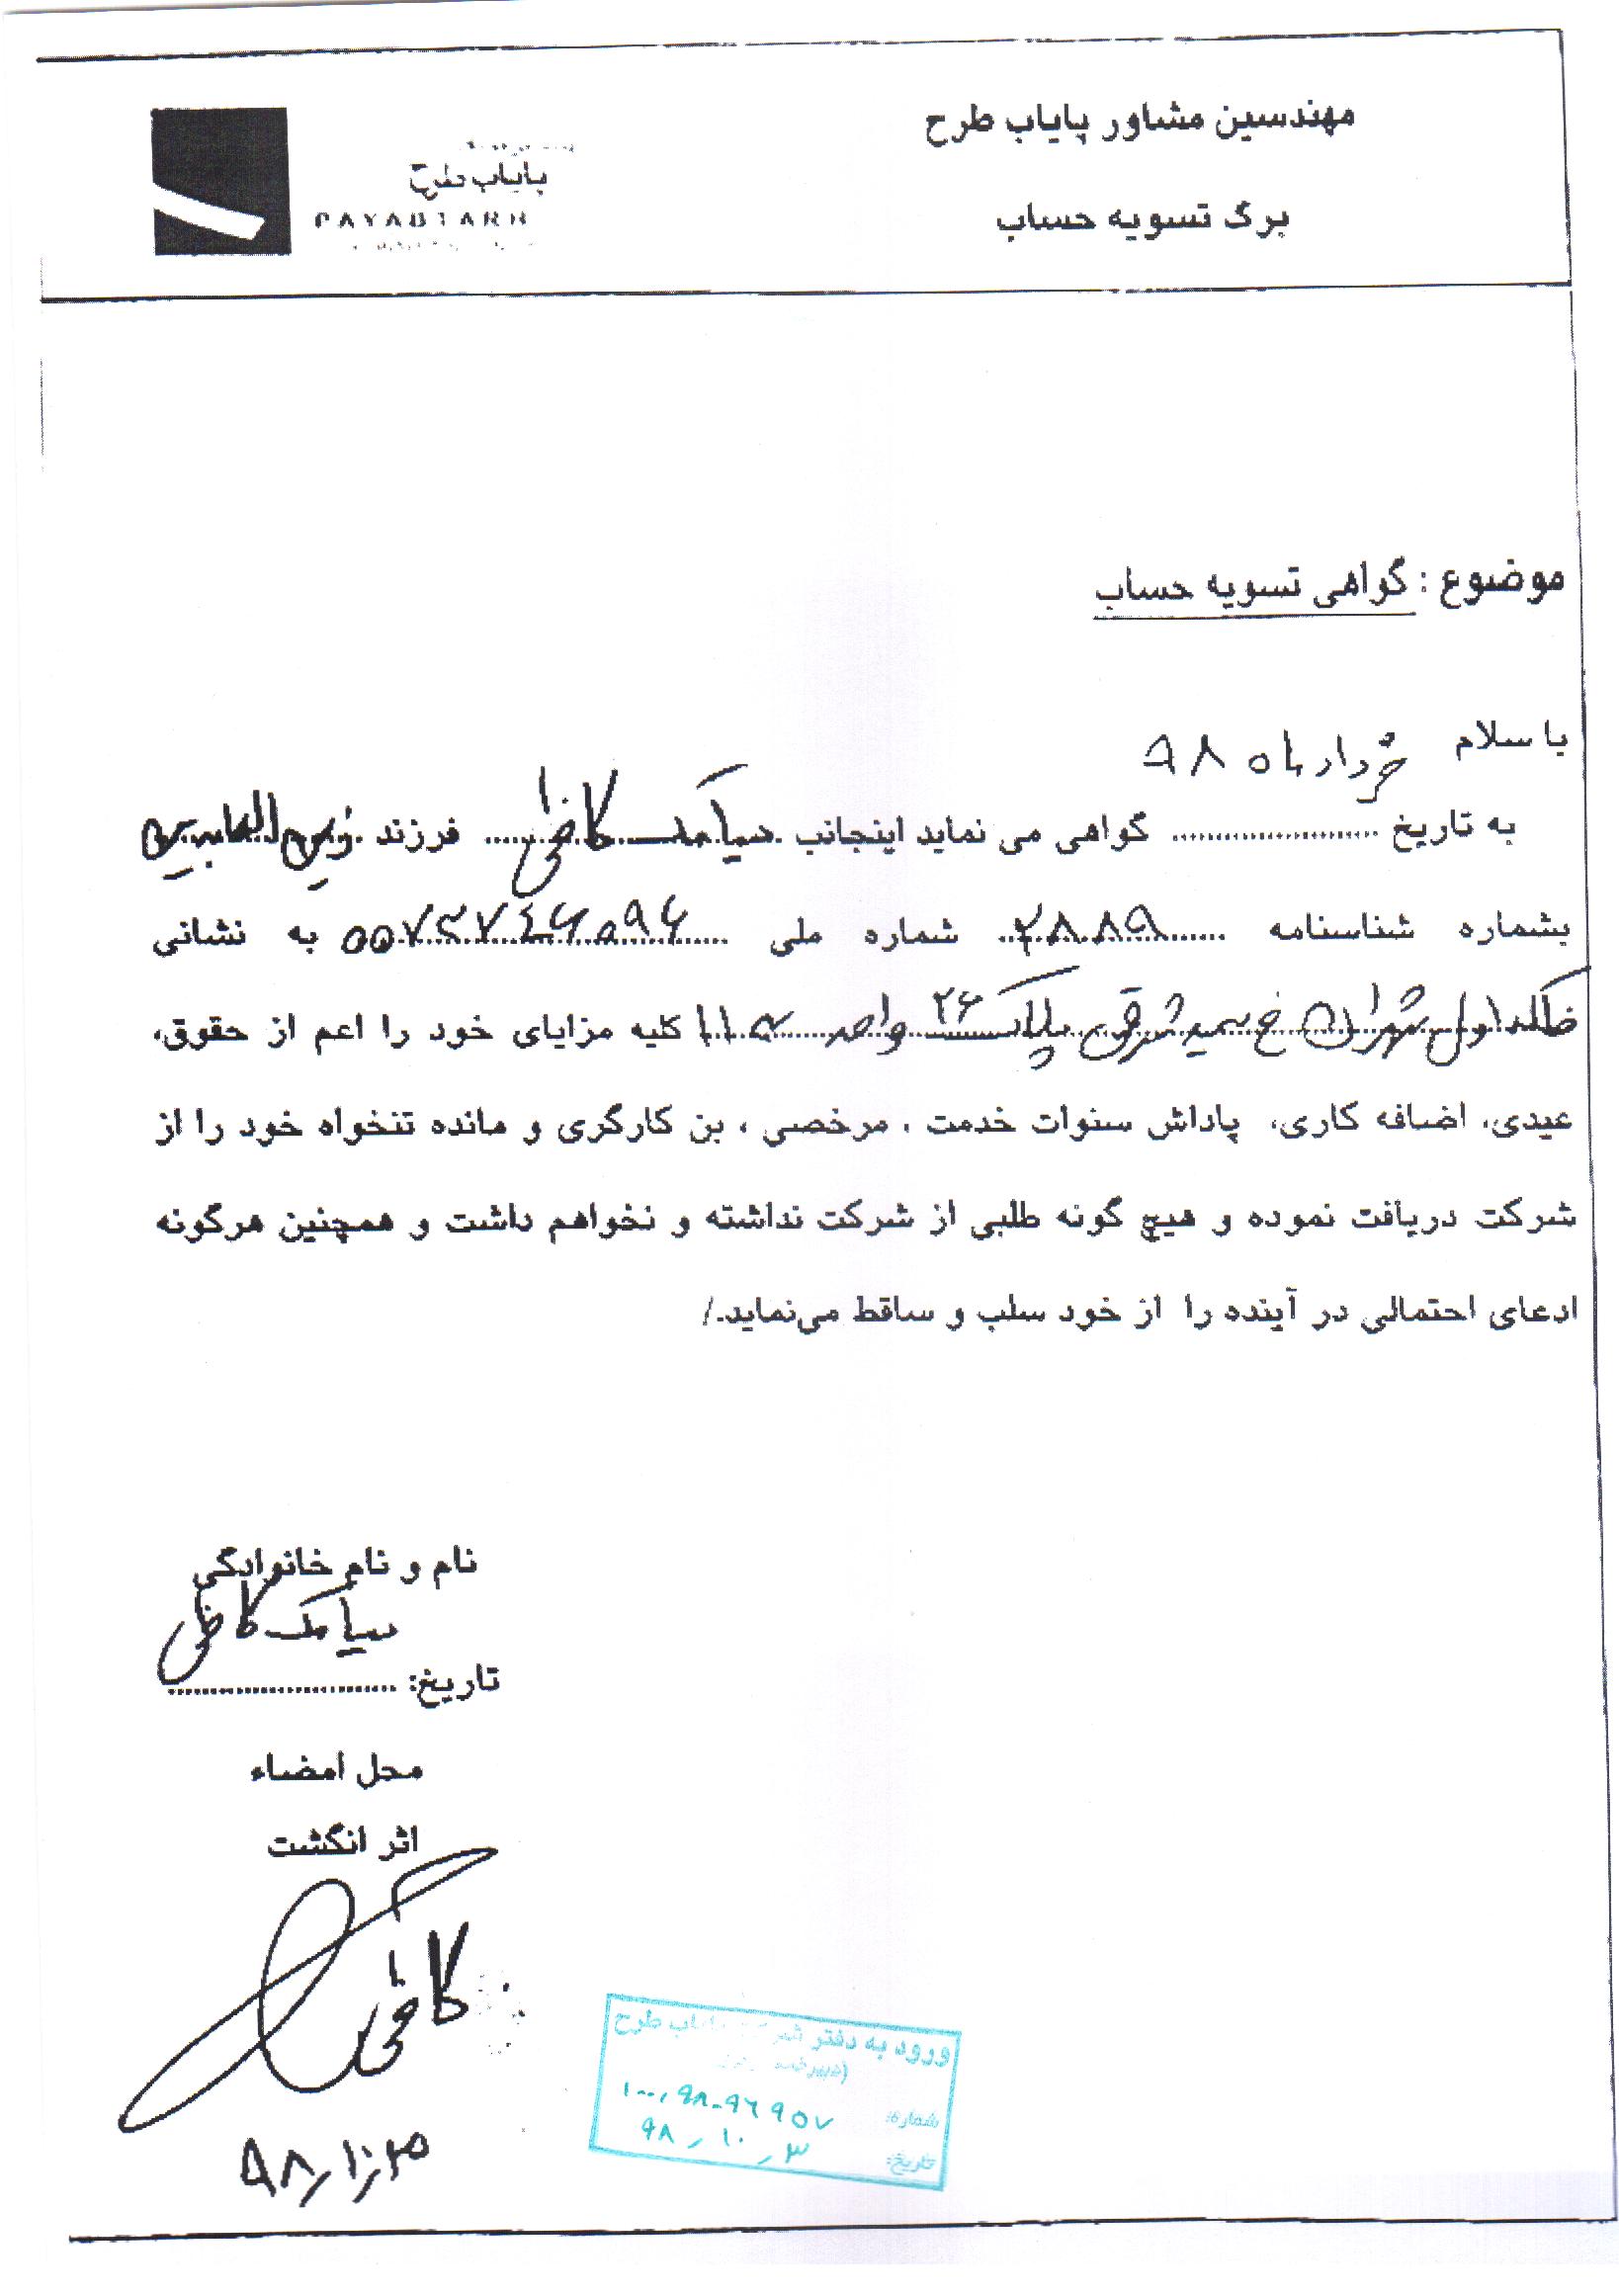 مهندسین مشاور پایاب طرح
برگ تسویه حساب
پایاب طرح
PAYABTARH
موضوع : گواهی تسویه حساب
با سلام
خرداد ماه ۹۸
به تاریخ .................... گواهی می نماید اینجانب سیامک کاظمی فرزند زین العابدین
بشماره شناسنامه ۲۸۸۹ شماره ملی به نشانی
اول شهران خ پلاک ۲۶ واحد ۱۱ کلیه مزایای خود را اعم از حقوق،
عیدی، اضافه کاری، پاداش سنوات خدمت ، مرخصی ، بن کارگری و مانده تنخواه خود را از
شرکت دریافت نموده و هیچ گونه طلبی از شرکت نداشته و نخواهم داشت و همچنین هرگونه
ادعای احتمالی در آینده را از خود سلب و ساقط می‌نماید./
نام و نام خانوادگی
سیامک کاظمی
تاریخ: ........................
محل امضاء
اثر انگشت
کاظمی
ورود به دفتر شرکت پایاب طرح
شماره: ۱۰۰,۹۸-۹۶۹۵۷
تاریخ: ۹۸,۱۰,۳